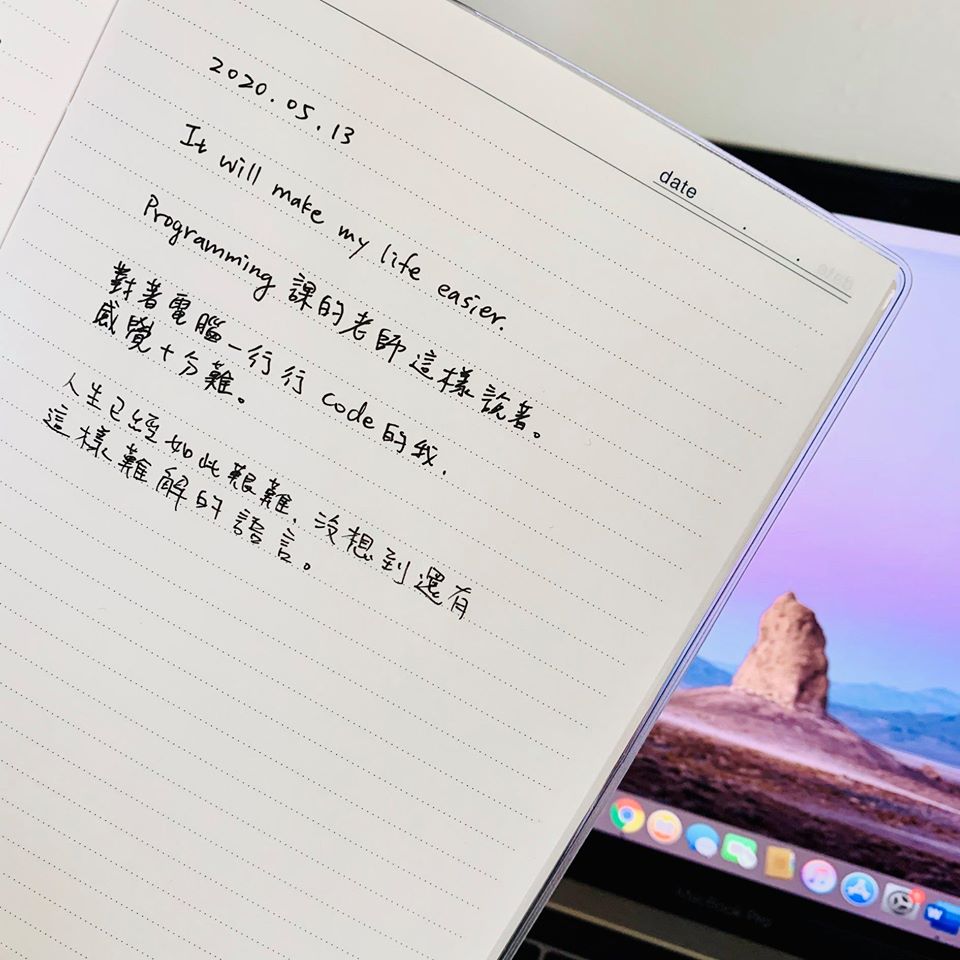 2020.05.13
It will make my life easier.
Programming 課的老師這樣說著。
對著電腦一行行 code 的我,
感覺十分難。
人生已經如此艱難,沒想到還有
這樣難解的語言。
date
MacBook Pro